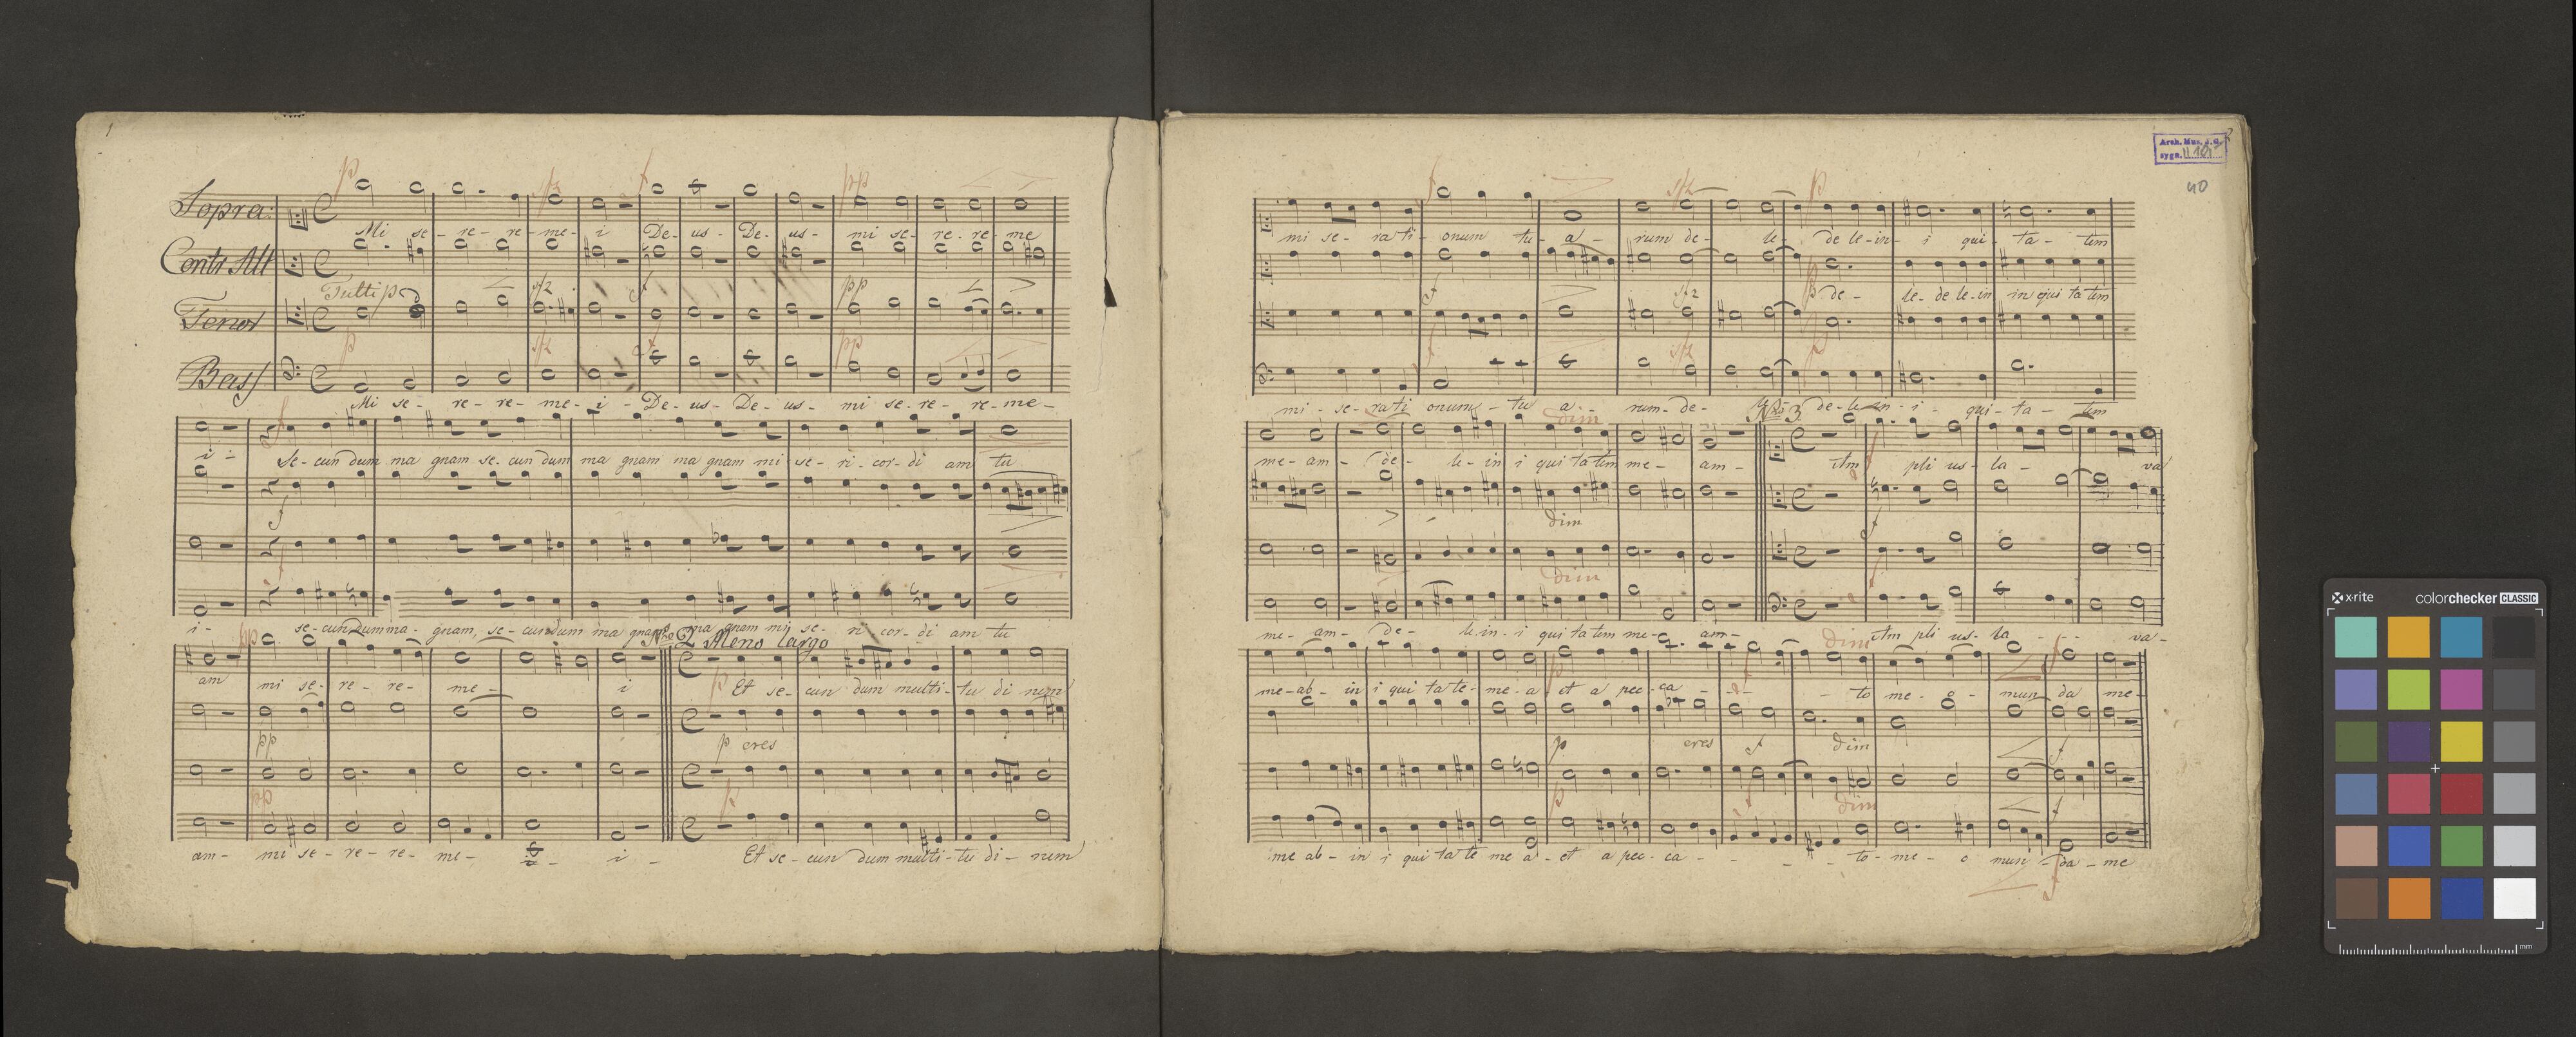 1
p sfz f pp
Sopra:
Mi se- re- re- me- i De- us- De- us- mi se- re- re- me
Contr Alt
Tutti p sfz f pp
Tenor
p sfz f pp
Bass
Mi se- re- re- me- i- De- us- De- us- mi se- re- re- me-
f
i- Se- cun dum ma gnam se- cun dum ma gnam ma gnam mi se- ri- cor- di am tu
f
f
i- se- cun dum ma- gnam, se- cun dum ma gnam ma gnam mi se- ri cor- di am tu
pp No 2 Meno largo
am mi se- re- re- me- i p Et se- cun dum multi- tu di nem
pp p cres
pp p
am- mi se- re- re- me- i- i- Et se- cun dum multi- tu di- nem
Arch. Mus. J. G.
sygn. II
2
40
f sfz p
mi se- ra ti- onum tu- a- rum de- le- de le- in- i qui- ta- tem
f sfz p de- le- de le- in in qui ta tem
f sfz p
mi- se- ra ti onum- tu a- rum- de- le- de- le in- i- qui- ta- tem
dim No 3
me- am- de- le- in i qui ta tem me- am- f Am pli us- la- va
dim f
dim f
me- am- de- le- in- i qui ta tem me- am- Am pli us- la- va-
p f dim f
me- ab- in i qui ta te- me- a- et a pec- ca- to me- o- mun da me-
p cres f dim f
p f dim f
me ab- in i qui ta te me a- et a pec- ca- to- me- o mun- da- me
f